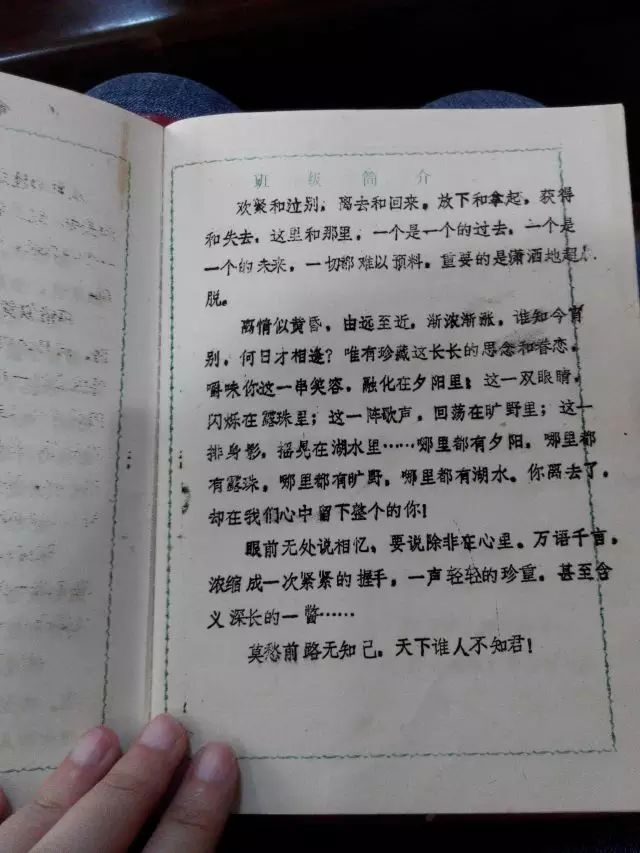 班级简介
欢聚和泣别，离去和回来，放下和拿起，获得
和失去，这里和那里，一个是一个的过去，一个是
一个的未来，一切都难以预料，重要的是潇洒地超
脱。
离情似黄昏，由远至近，渐浓渐涨，谁知今宵
别，何日才相逢？唯有珍藏这长长的思念和眷恋，
嚼味你这一串笑容，融化在夕阳里；这一双眼睛，
闪烁在露珠里；这一阵歌声，回荡在旷野里；这一
排身影，摇晃在湖水里……哪里都有夕阳，哪里都
有露珠，哪里都有旷野，哪里都有湖水。你离去了，
却在我们心中留下整个的你！
眼前无处说相忆，要说除非在心里。万语千言，
浓缩成一次紧紧的握手，一声轻轻的珍重，甚至含
义深长的一瞥……
莫愁前路无知己，天下谁人不知君！